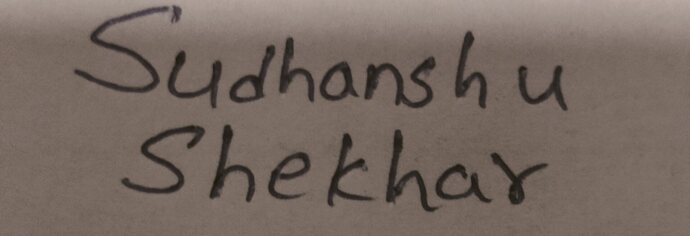 Sudhanshu
Shekhar